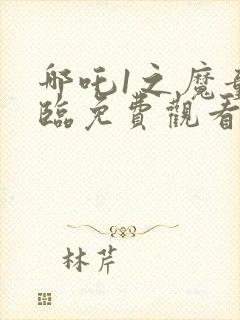 哪吒1之魔童
臨免費觀看
林芹